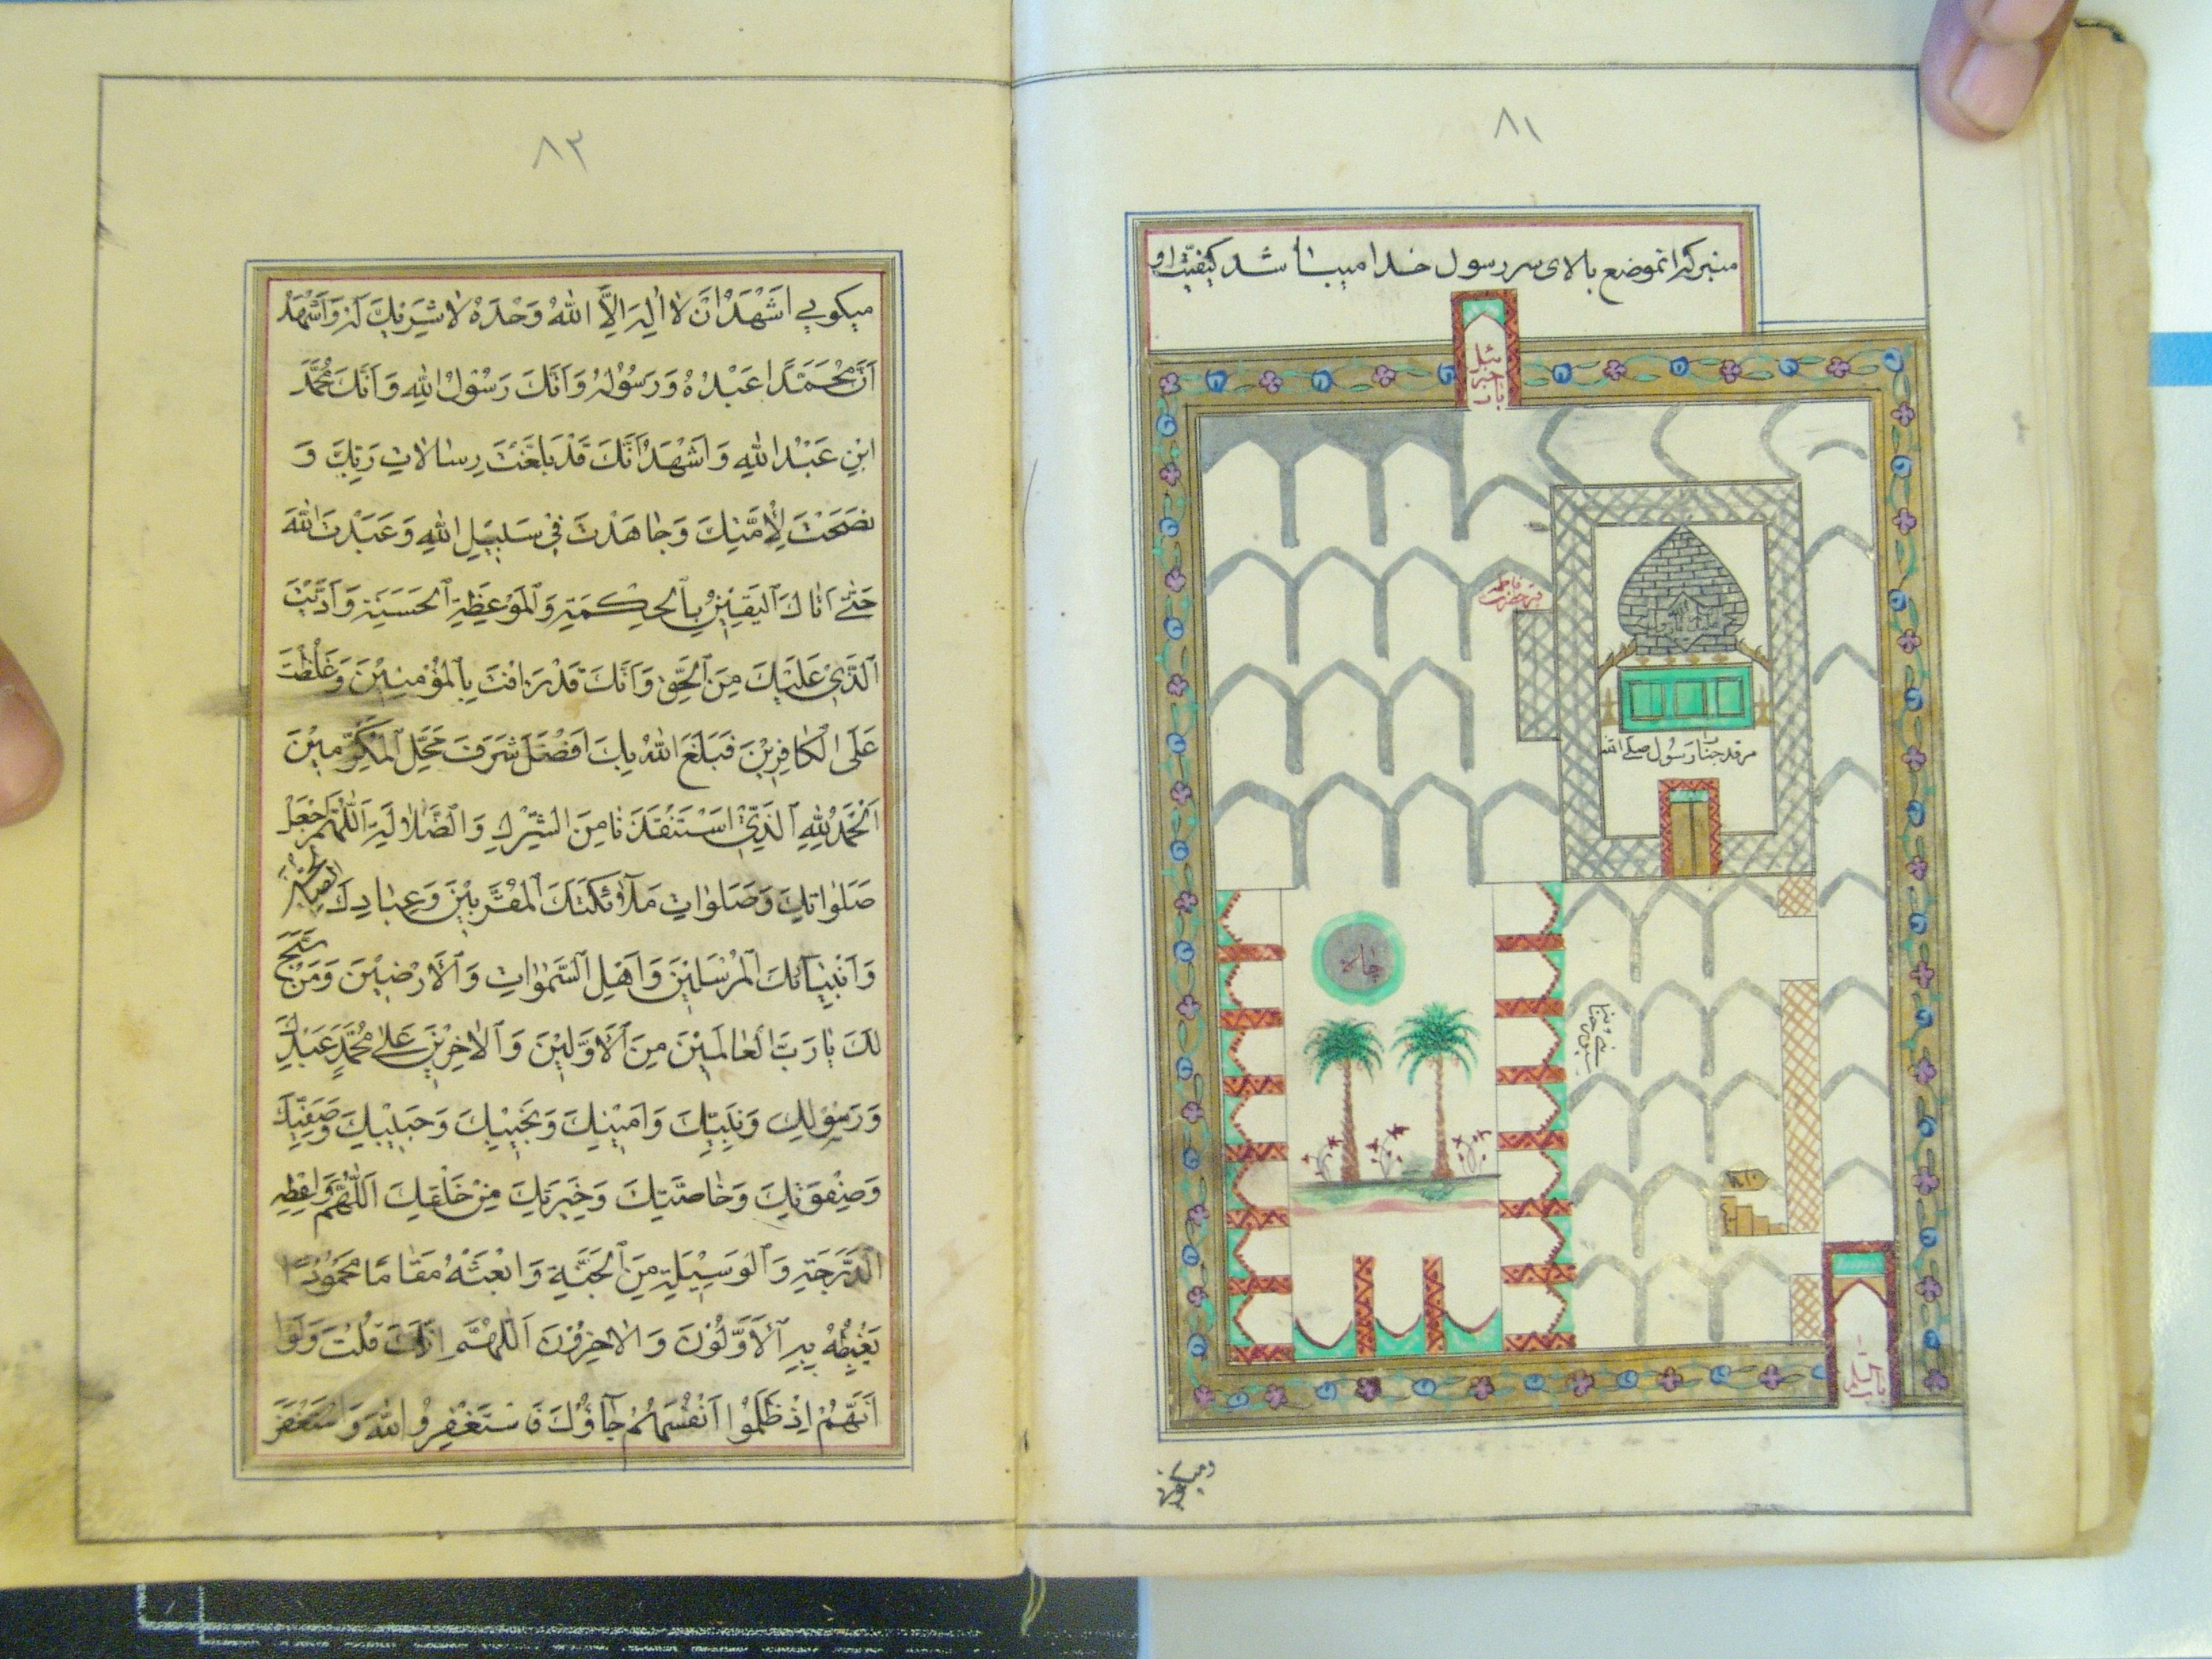 ٨١
منبر که انموضع بالای سر رسول خدا میباشد کیفیت او
باب جبرئیل
قبر حضرت فاطمه
مرقد جناب رسول صلی الله
چاه
ستون حنانه
باب السلام
٨٣
میکویی اَشْهَدُ اَنْ لا اِلٰهَ اِلَّا اللهُ وَحْدَهُ لا شَرِیكَ لَهُ وَاَشْهَدُ
اَنَّ مُحَمَّدًا عَبْدُهُ وَرَسُولُهُ وَاَنَّكَ رَسُولُ اللهِ وَاَنَّكَ مُحَمَّدُ
ابْنِ عَبْدِ اللهِ وَاَشْهَدُ اَنَّكَ قَدْ بَلَّغْتَ رِسالاتِ رَبِّكَ وَ
نَصَحْتَ لِاُمَّتِكَ وَجاهَدْتَ فِی سَبِیلِ اللهِ وَعَبَدْتَ اللهَ
حَتّیٰ اَتاكَ الْیَقِینُ بِالْحِكْمَةِ وَالْمَوْعِظَةِ الْحَسَنَةِ وَاَدَّیْتَ
الَّذِی عَلَیْكَ مِنَ الْحَقِّ وَاَنَّكَ قَدْ رَؤُفْتَ بِالْمُؤْمِنِینَ وَغَلُظْتَ
عَلَی الْكافِرِینَ فَبَلَغَ اللهُ بِكَ اَفْضَلَ شَرَفَ مَحَلِّ الْمُكَرَّمِینَ
اَلْحَمْدُ لِلّٰهِ الَّذِی اسْتَنْقَذَنا مِنَ الشِّرْكِ وَالضَّلالَةِ اَللّٰهُمَّ اجْعَلْ
صَلَواتِكَ وَصَلَواتِ مَلآئِكَتِكَ الْمُقَرَّبِینَ وَعِبادِكَ الصّالِحِینَ
وَاَنْبِیآئِكَ الْمُرْسَلِینَ وَاَهْلِ السَّمٰواتِ وَالْاَرْضِینَ وَمَنْ سَبَّحَ
لَكَ یا رَبَّ الْعالَمِینَ مِنَ الْاَوَّلِینَ وَالْاٰخِرِینَ عَلیٰ مُحَمَّدٍ عَبْدِكَ
وَرَسُولِكَ وَنَبِیِّكَ وَاَمِینِكَ وَنَجِیبِكَ وَحَبِیبِكَ وَصَفِیِّكَ
وَصِفْوَتِكَ وَخاصَّتِكَ وَخِیَرَتِكَ مِنْ خَلْقِكَ اَللّٰهُمَّ وَاعْطِهِ
الدَّرَجَةَ وَالْوَسِیلَةَ مِنَ الْجَنَّةِ وَابْعَثْهُ مَقامًا مَحْمُودًا
یَغْبِطُهُ بِهِ الْاَوَّلُونَ وَالْاٰخِرُونَ اَللّٰهُمَّ اِنَّكَ قُلْتَ وَلَوْ
اَنَّهُمْ اِذْ ظَلَمُوا اَنْفُسَهُمْ جآؤُكَ فَاسْتَغْفِرُوا اللهَ وَاسْتَغْفَرَ